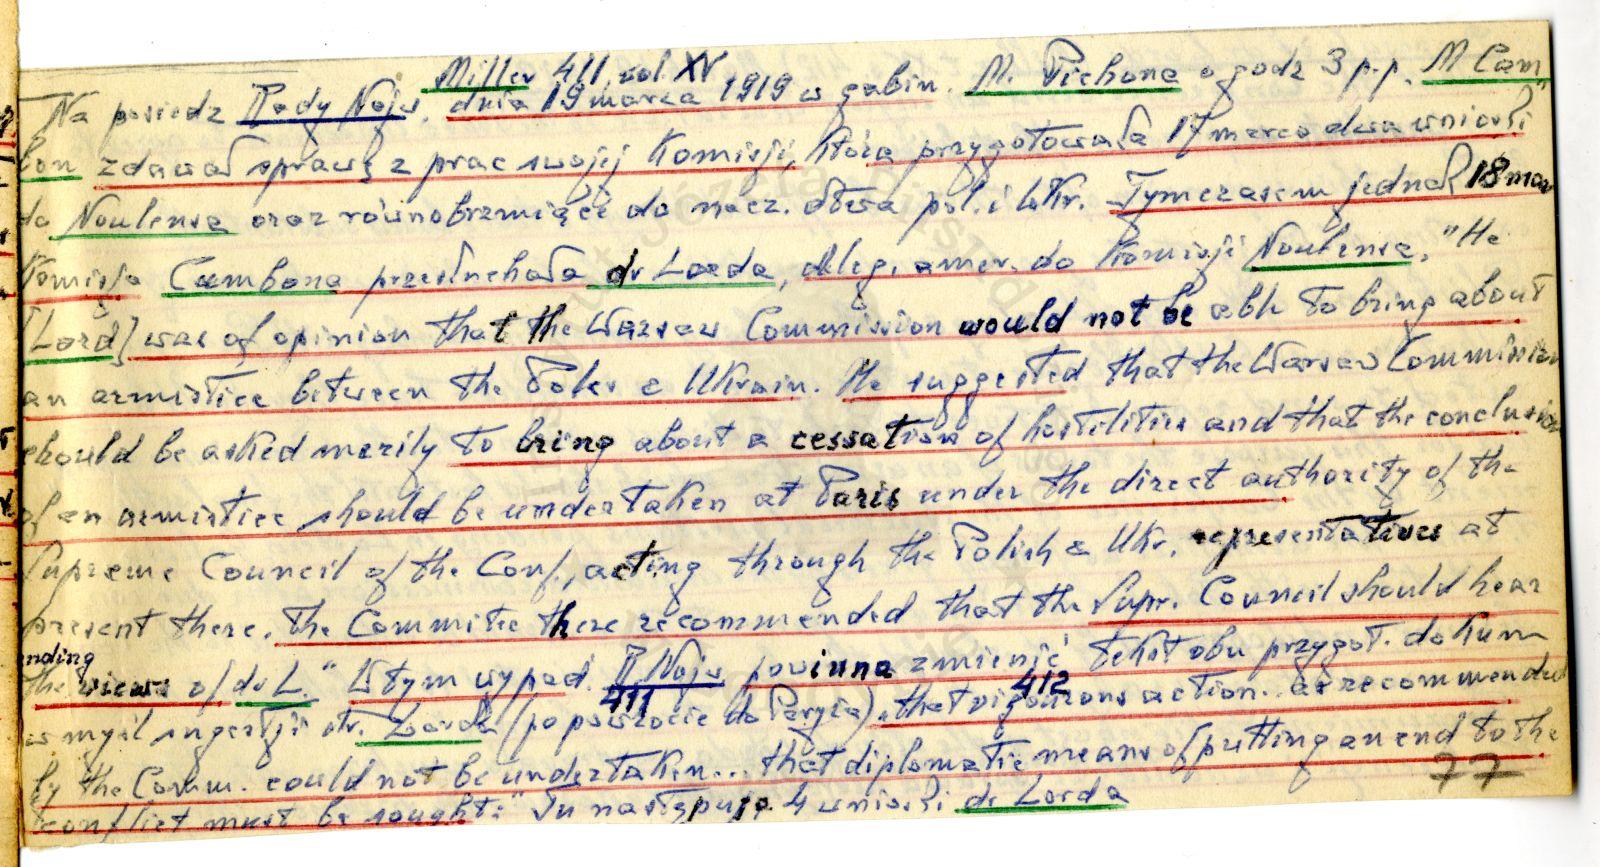 Miller 411, vol. XV
Na posiedz Rady Najw. dnia 19 marca 1919 w gabin. M. Pichona o godz 3 p.p. M Cam
bon zdawał sprawę z prac swojej Komisji, która przygotowała 17 marca dwa wnioski
do Noulensa oraz równobrzmiące do nacz. dtwa pol. i Ukr. Tymczasem jednak 18 mar
Komisja Cambona przesłuchała dr Lorda, deleg. amer. do Komisji Noulensa. "He
[Lord] was of opinion that the Warsaw Commission would not be able to bring about
an armistice between the Poles & Ukrain. He suggested that the Warsaw Commission
should be asked merily to bring about a cessation of hostilities and that the conclusion
of an armistice should be undertaken at Paris under the direct authority of the
Supreme Council of the Conf., acting through the Polish & Ukr. representatives at
present there. The Committee there recommended that the Supr. Council should hear
the views of dr L." W tym wypad. R Najw powinna zmienić tekst obu przygot. dokum
w myśl sugestji dr. Lorda (po powrocie do Paryża) 411 "that vigourous action.. as recommended 412
by the Comm. could not be undertaken... that diplomatic means of putting an end to the
conflict must be sought:" Tu następują 4 wnioski dr Lorda
77